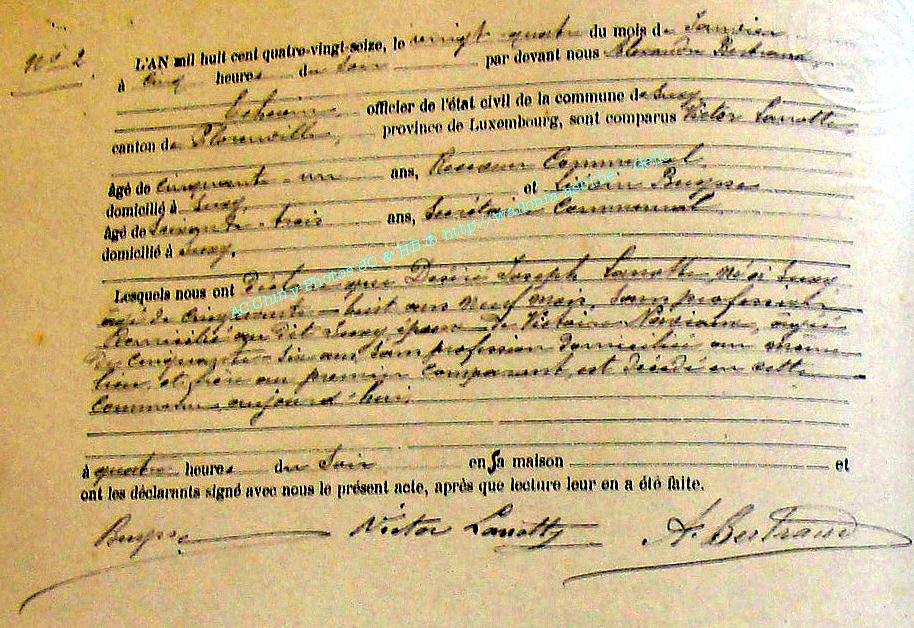 No 2.
L'AN mil huit cent quatre-vingt-seize, le vingt quatre du mois de Janvier
à Cinq heures du Soir par devant nous Alexandre Bertrand,
Echevin officier de l'état civil de la commune de Suxy
canton de Florenville, province de Luxembourg, sont comparus Victor Lanotte,
âgé de Cinquante-un ans, Receveur Communal
domicilié à Suxy et Buysse
âgé de Soixante-trois ans, Secrétaire Communal
domicilié à Suxy.
Lesquels nous ont déclaré que Désiré Joseph Lanotte, né à Suxy
âgé de Cinquante-huit ans neuf mois, Sans profession,
domicilié au dit Suxy époux de Victoire âgée
de Cinquante Six ans, Sans profession domiciliée au même
lieu, et frère au premier Comparant, est décédé en cette
Commune aujourd'hui
à quatre heures du Soir en sa maison et
ont les déclarants signé avec nous le présent acte, après que lecture leur en a été faite.
Buysse Victor Lanotte A. Bertrand
AC Chiny Photos JC & HB © http://wallonia